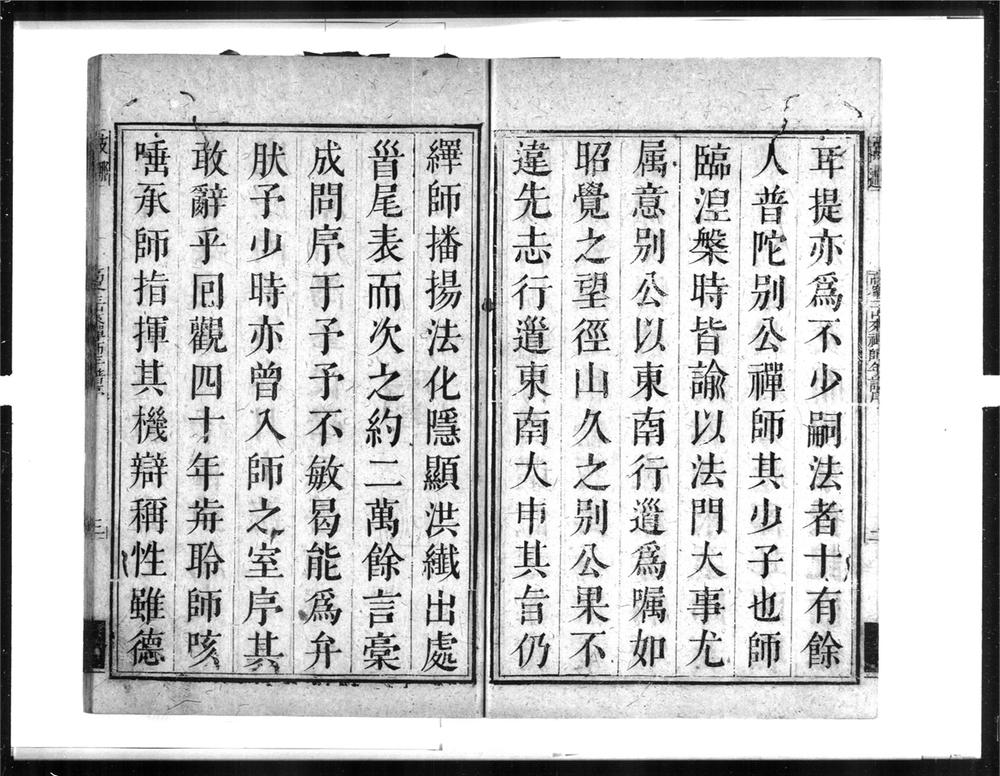 耳提亦爲不少嗣法者十有餘
人普陀別公禪師其少子也師
臨湼槃時皆諭以法門大事尤
属意别公以東南行遊爲嘱如
昭覺之望徑山久之别公果不
違先志行遊東南大申其旨仍
繹師播揚法化隱顯洪纖出處
首尾表而次之約二萬餘言槀
成問序于予予不敏曷能爲弁
肰予少時亦曾入師之室序其
敢辭乎囘觀四十年前聆師咳
唾承師指揮其機辯稱性雖德